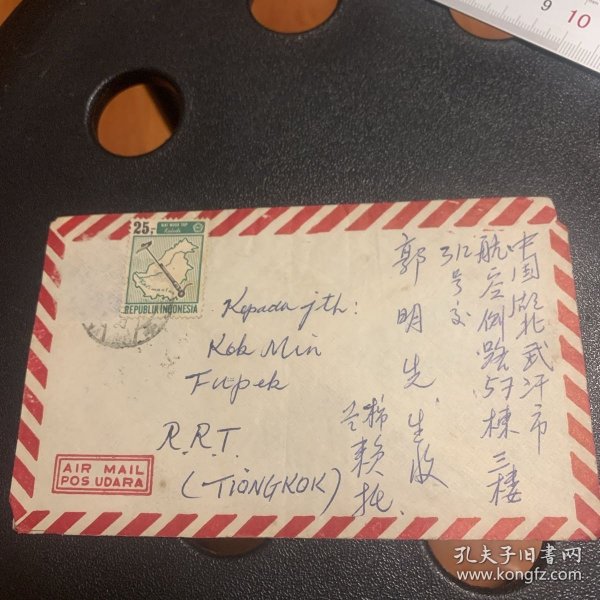 9 10
25,-
REPUBLIK INDONESIA
Kepada jth:
Kok Min
Fupek
R.R.T.
(TIONGKOK)
AIR MAIL
POS UDARA
中国湖北武汗市
航空侧路57栋三楼
312号交
郭明先生收
赖托
孔夫子旧书网
www.kongfz.com